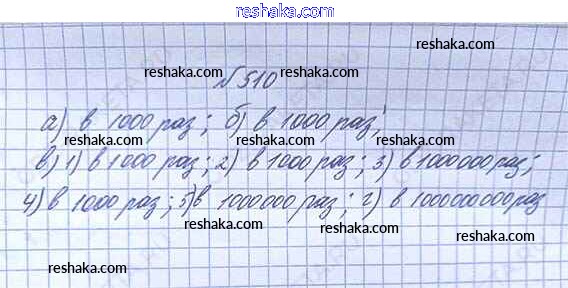 reshaka.com
reshaka.com reshaka.com
reshaka.com
№510
а) в 1000 раз; б) в 1000 раз;
reshaka.com reshaka.com reshaka.com
в) 1) в 1000 раз; 2) в 1000 раз; 3) в 1000000 раз;
4) в 1000 раз; 5) в 1000000 раз; г) в 1000000000 раз
reshaka.com reshaka.com
reshaka.com reshaka.com reshaka.com